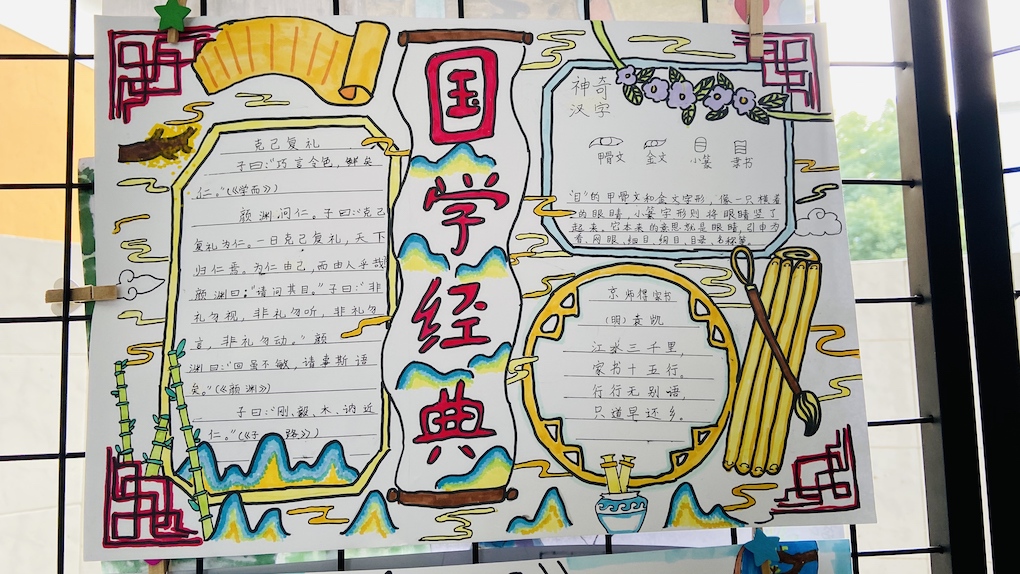 国学经典
克己复礼
子曰:“巧言令色,鲜矣
仁。”(《学而》)
颜渊问仁。子曰:“克己
复礼为仁。一日克己复礼,天下
归仁焉。为仁由己,而由人乎哉
颜渊曰:“请问其目。”子曰:“非
礼勿视,非礼勿听,非礼勿
言,非礼勿动。”颜
渊曰:“回虽不敏,请事斯语
矣。”(《颜渊》)
子曰:“刚、毅、木、讷近
仁。”(《子路》)
神奇
汉字
甲骨文
金文
小篆
隶书
“目”的甲骨文和金文字形,像一只横着
的眼睛,小篆字形则将眼睛竖了
起来,它本来的意思就是眼睛,引申为
看、网眼、细目、纲目、目录、名称等
京师得家书
(明)袁凯
江水三千里,
家书十五行。
行行无别语,
只道早还乡。